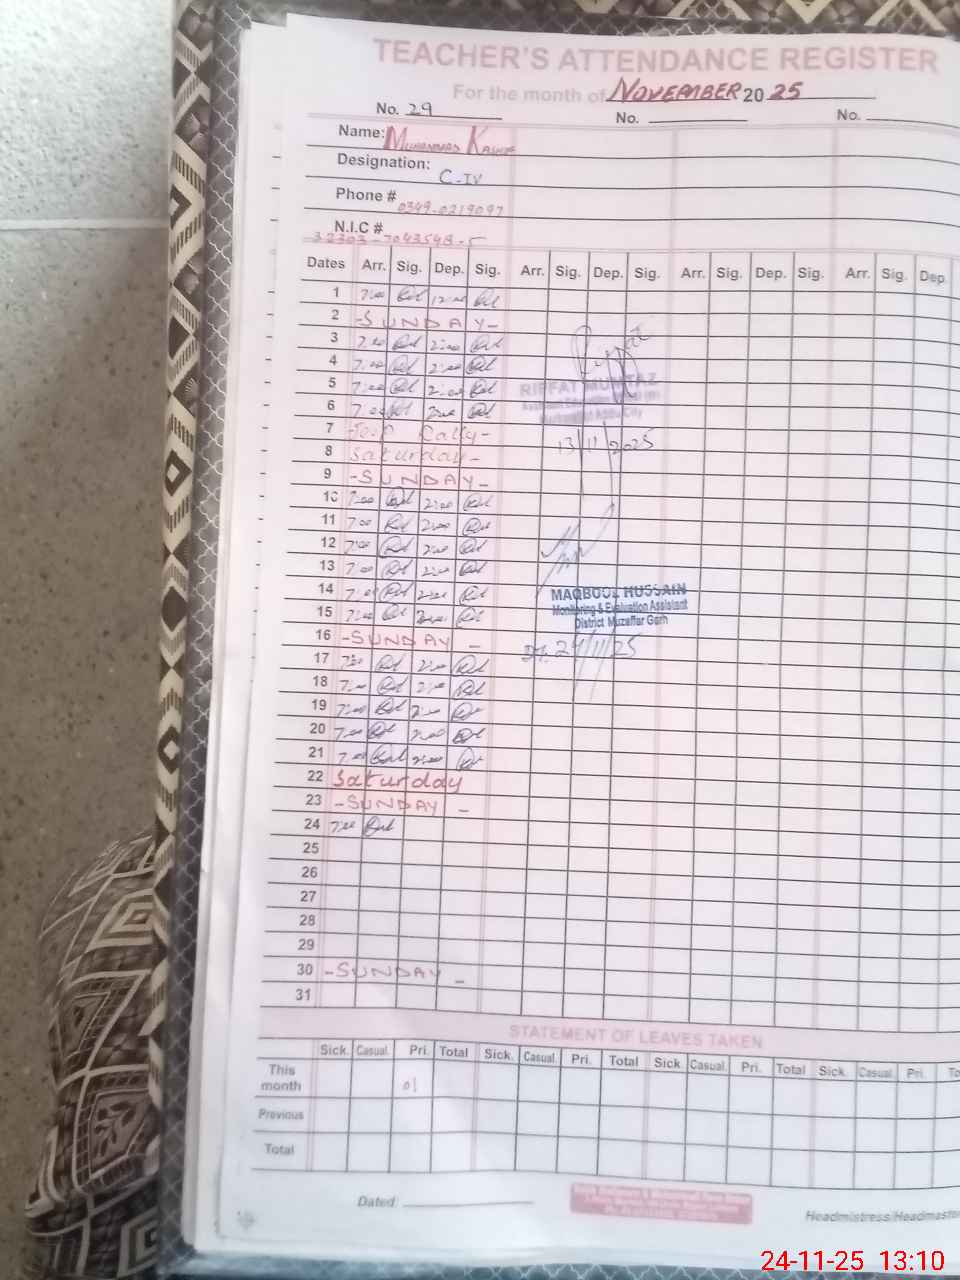 TEACHER'S ATTENDANCE REGISTER
For the month of NOVEMBER 2025
No. 29 No. No.
Name: MUHAMMAD KASHIF
Designation: C-IV
Phone # 0349-0219097
N.I.C # 32303-7043548-5
Dates Arr. Sig. Dep. Sig. Arr. Sig. Dep. Sig. Arr. Sig. Dep. Sig. Arr. Sig. Dep.
1 7:00 12:00
2 -SUNDAY-
3 7:00 2:00
4 7:00 2:00
5 7:00 2:00
RIFFAT MUMTAZ
6 7:00 2:00
7
13/11/2025
8 Saturday-
9 -SUNDAY-
10 7:00 2:00
11 7:00 2:00
12 7:00 2:00
13 7:00 2:00
14 7:00 2:00
MAQBOOL HUSSAIN
15 7:00 2:00
Monitoring & Evaluation Assistant
District Muzaffar Garh
16 -SUNDAY-
Dt. 24/11/25
17 7:00 2:00
18 7:00 2:00
19 7:00 2:00
20 7:00 2:00
21 7:00 2:00
22 Saturday
23 -SUNDAY-
24 7:00
25
26
27
28
29
30 -SUNDAY-
31
STATEMENT OF LEAVES TAKEN
Sick. Casual. Pri. Total Sick. Casual. Pri. Total Sick. Casual. Pri. Total Sick. Casual. Pri. To
This month 01
Previous
Total
Dated:
Headmistress/Headmaster
24-11-25 13:10